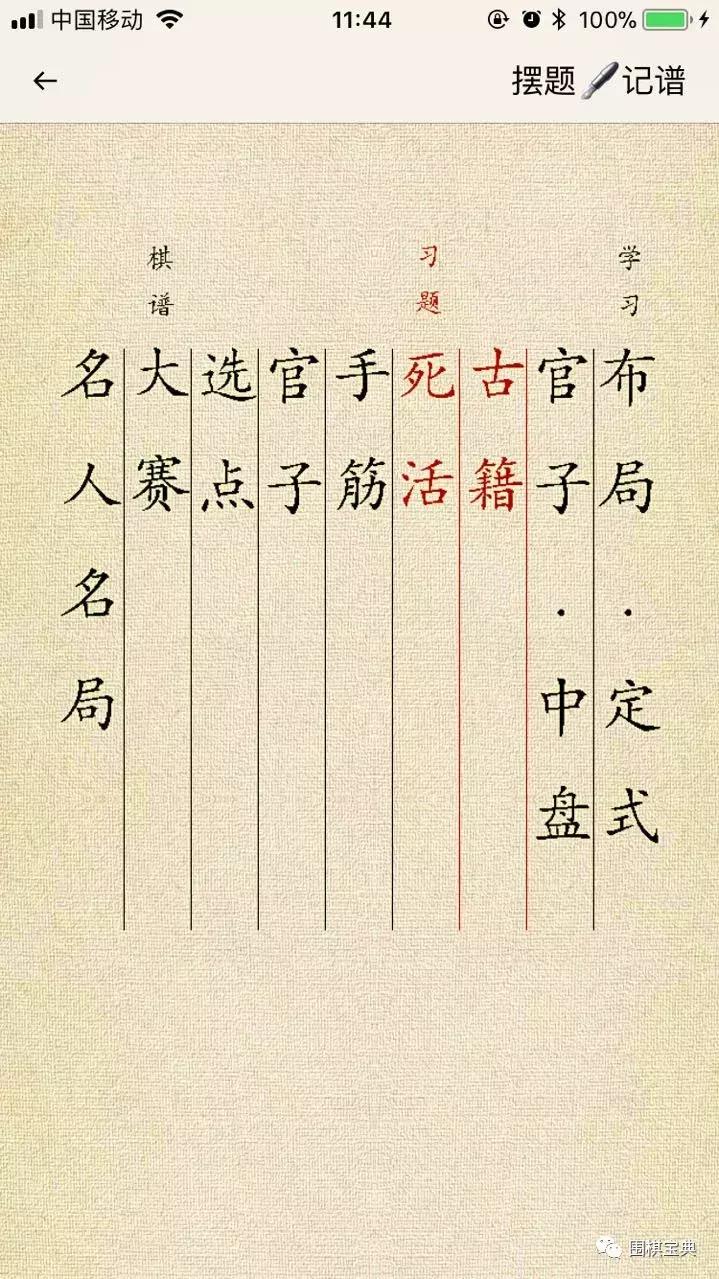 中国移动 11:44 100%
← 摆题 记谱
学习
习题
棋谱
布局·定式
官子·中盘
古籍
死活
手筋
官子
选点
大赛
名人名局
围棋宝典